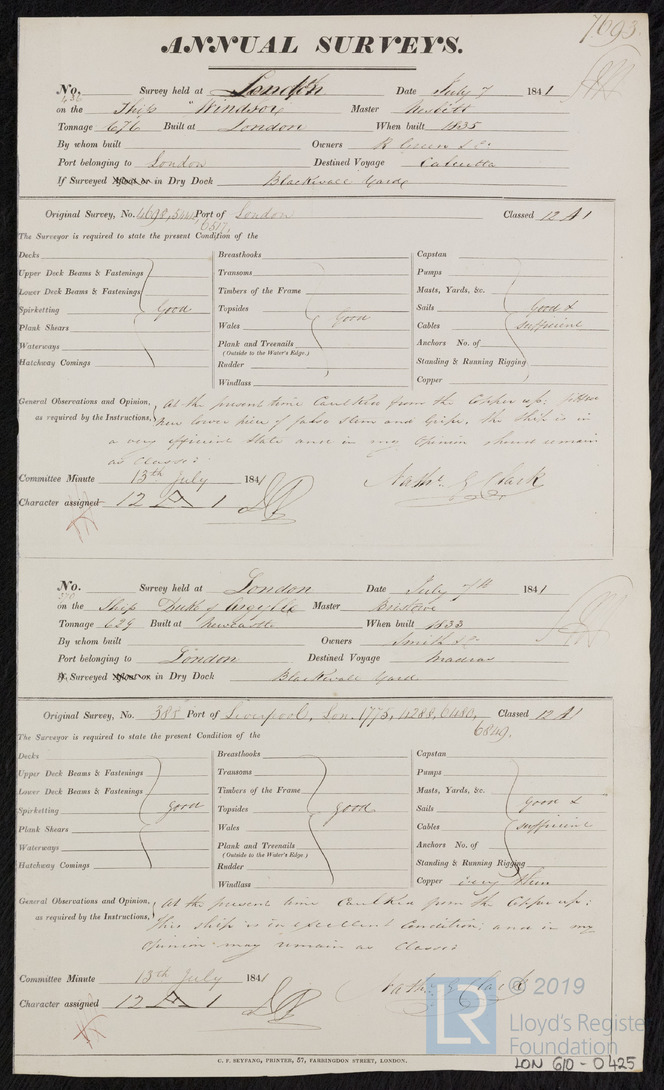 7693.
ANNUAL SURVEYS.
No. 436 Survey held at London Date July 7 1841
on the Ship "Windsor" Master Nesbitt
Tonnage 676 Built at London When built 1835
By whom built Owners R Green & Co
Port belonging to London Destined Voyage Calcutta
If Surveyed Afloat or in Dry Dock Blackwall Yard
Original Survey, No. 4698, 5111, Port of London Classed 12 A 1
6517,
The Surveyor is required to state the present Condition of the
Decks Breasthooks Capstan
Upper Deck Beams & Fastenings Transoms Pumps
Lower Deck Beams & Fastenings Timbers of the Frame Masts, Yards, &c.
Spirketting Good Topsides Good Sails Good &
Plank Shears Wales Cables sufficient
Waterways Plank and Treenails Anchors No. of
(Outside to the Water's Edge.)
Hatchway Comings Rudder Standing & Running Rigging
Windlass Copper
General Observations and Opinion, At the present time Caulked from the Copper up;
as required by the Instructions, New lower piece of false Stem and Gripe. the Ship is in
a very efficient State and in my Opinion should remain
as Classed
Committee Minute 13th July 1841 Nathl. G Clark
Character assigned 12 A 1
No. 370 Survey held at London Date July 7th 1841
on the Ship Duke of Argyle Master Bristow
Tonnage 629 Built at Newcastle When built 1833
By whom built Owners Smith & Co
Port belonging to London Destined Voyage Madras
If Surveyed Afloat or in Dry Dock Blackwall Yard
Original Survey, No. 385 Port of Liverpool, Lon. 1775, 4288, 6480, Classed 12 A 1
6849.
The Surveyor is required to state the present Condition of the
Decks Breasthooks Capstan
Upper Deck Beams & Fastenings Transoms Pumps
Lower Deck Beams & Fastenings Timbers of the Frame Masts, Yards, &c.
Spirketting Good Topsides Good Sails Good &
Plank Shears Wales Cables sufficient
Waterways Plank and Treenails Anchors No. of
(Outside to the Water's Edge.)
Hatchway Comings Rudder Standing & Running Rigging
Windlass Copper very thin
General Observations and Opinion, At the present time Caulked from the Copper up;
as required by the Instructions, this ship is in excellent Condition; and in my
Opinion may remain as Classed
Committee Minute 13th July 1841 Nathl. G Clark
Character assigned 12 A 1
C. F. SEYFANG, PRINTER, 57, FARRINGDON STREET, LONDON.
LR © 2019
Lloyd's Register
Foundation
LON 610 - 0425